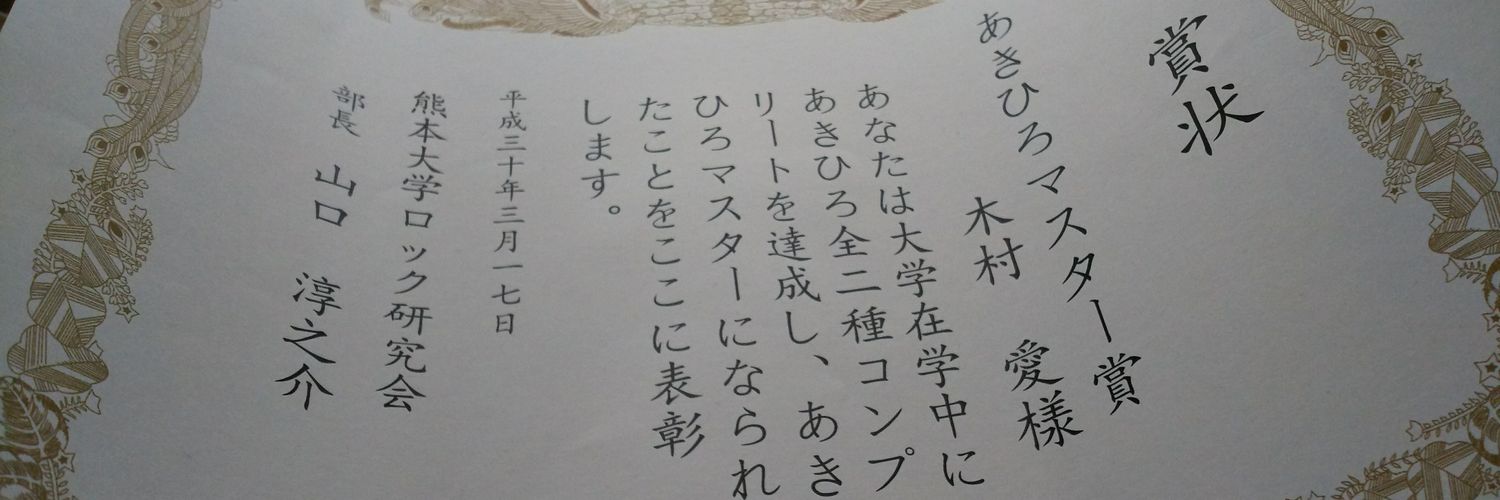 賞状
あきひろマスター賞
木村 愛様
あなたは大学在学中に
あきひろ全二種コンプ
リートを達成し、あき
ひろマスターになられ
たことをここに表彰
します。
平成三十年三月一七日
熊本大学ロック研究会
部長 山口 淳之介